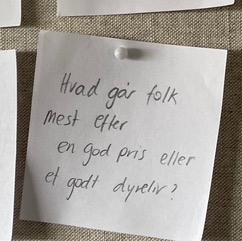 Hvad går folk
mest efter
en god pris eller
et godt dyreliv?